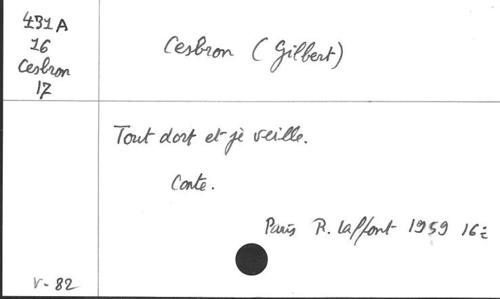 431A
16
Cesbron
17
Cesbron (Gilbert)
Tout dort et je veille.
Conte.
Paris R. Laffont 1959 16:
V-82